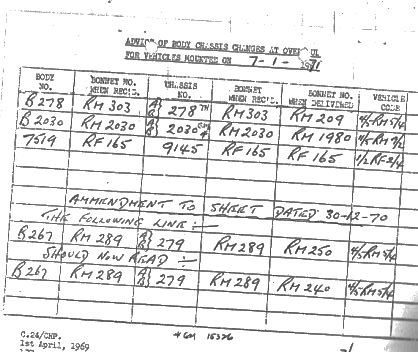 ADVICE OF BODY CHASSIS CHANGES AT OVERHAUL
FOR VEHICLES MOUNTED ON 7-1-1971
BODY NO. BONNET NO. WHEN RECD. CHASSIS NO. BONNET WHEN RECD. BONNET NO. WHEN DELIVERED VEHICLE CODE
B278 RM303 278 RM303 RM209 4/5RM5/4
B2030 RM2030 2030 RM2030 RM1980
7519 RF165 9145 RF165 RF165 1/2RF2/4
AMMENDMENT TO SHEET DATED 30-12-70
THE FOLLOWING LINE:-
B267 RM289 279 RM289 RM250 4/5RM5/4
SHOULD NOW READ:-
B267 RM289 279 RM289 RM240 4/5RM5/4
C.24/CHP.
1st April, 1969